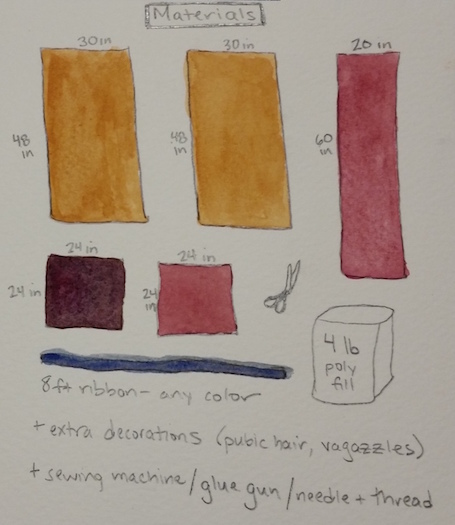 Materials
30 in
30 in
20 in
48 in
48 in
60 in
24 in
24 in
24 in
24 in
4 lb
poly
fill
8ft ribbon- any color
+ extra decorations (pubic hair, vagazzles)
+ sewing machine/glue gun/needle + thread